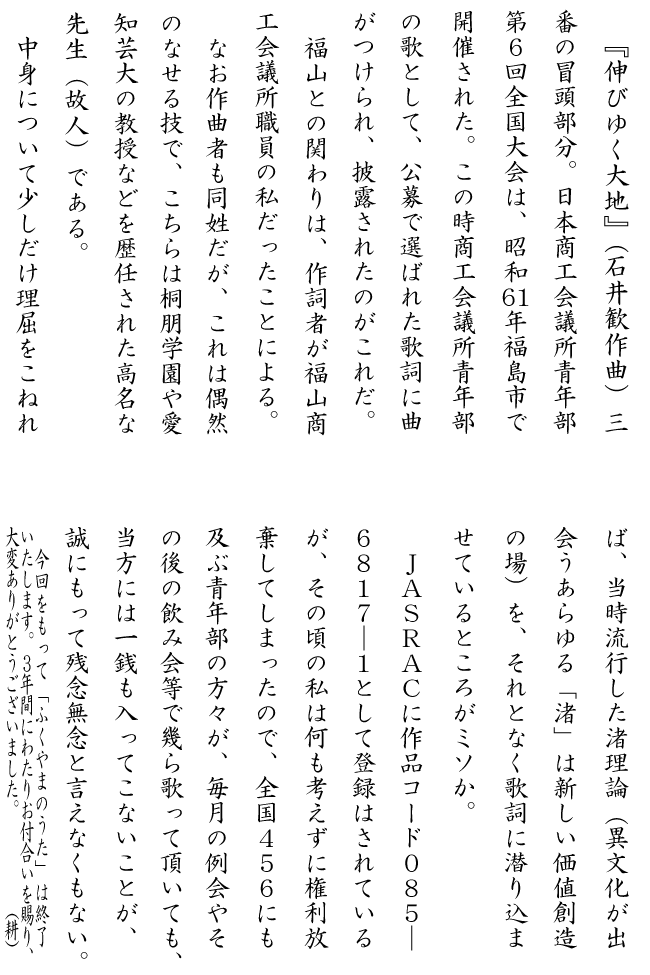 『伸びゆく大地』（石井歓作曲）三
番の冒頭部分。日本商工会議所青年部
第６回全国大会は、昭和61年福島市で
開催された。この時商工会議所青年部
の歌として、公募で選ばれた歌詞に曲
がつけられ、披露されたのがこれだ。
福山との関わりは、作詞者が福山商
工会議所職員の私だったことによる。
なお作曲者も同姓だが、これは偶然
のなせる技で、こちらは桐朋学園や愛
知芸大の教授などを歴任された高名な
先生（故人）である。
中身について少しだけ理屈をこねれ
ば、当時流行した渚理論（異文化が出
会うあらゆる「渚」は新しい価値創造
の場）を、それとなく歌詞に潜り込ま
せているところがミソか。
ＪＡＳＲＡＣに作品コード０８５―
６８１７―１として登録はされている
が、その頃の私は何も考えずに権利放
棄してしまったので、全国４５６にも
及ぶ青年部の方々が、毎月の例会やそ
の後の飲み会等で幾ら歌って頂いても、
当方には一銭も入ってこないことが、
誠にもって残念無念と言えなくもない。
今回をもって「ふくやまのうた」は終了
いたします。３年間にわたりお付合いを賜り、
大変ありがとうございました。　（耕）